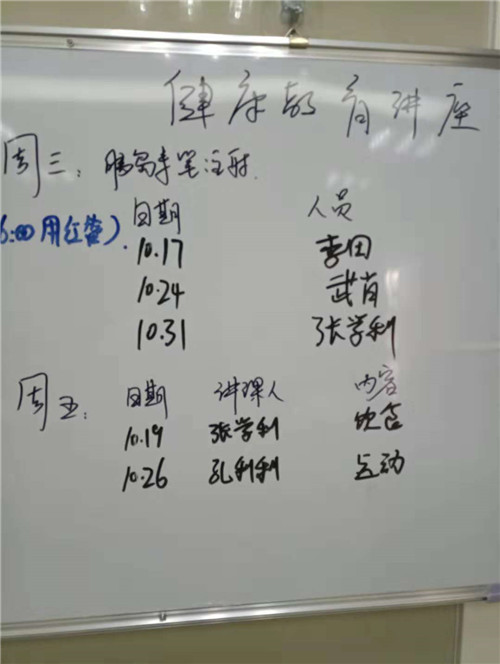 健康教育讲座
周三：胰岛素笔注射.
日期 人员
6:00用红管）.
10.17 李田
10.24 武肖
10.31 张学利
周五：日期 讲课人 内容
10.19 张学利 饮食
10.26 孔利利 运动